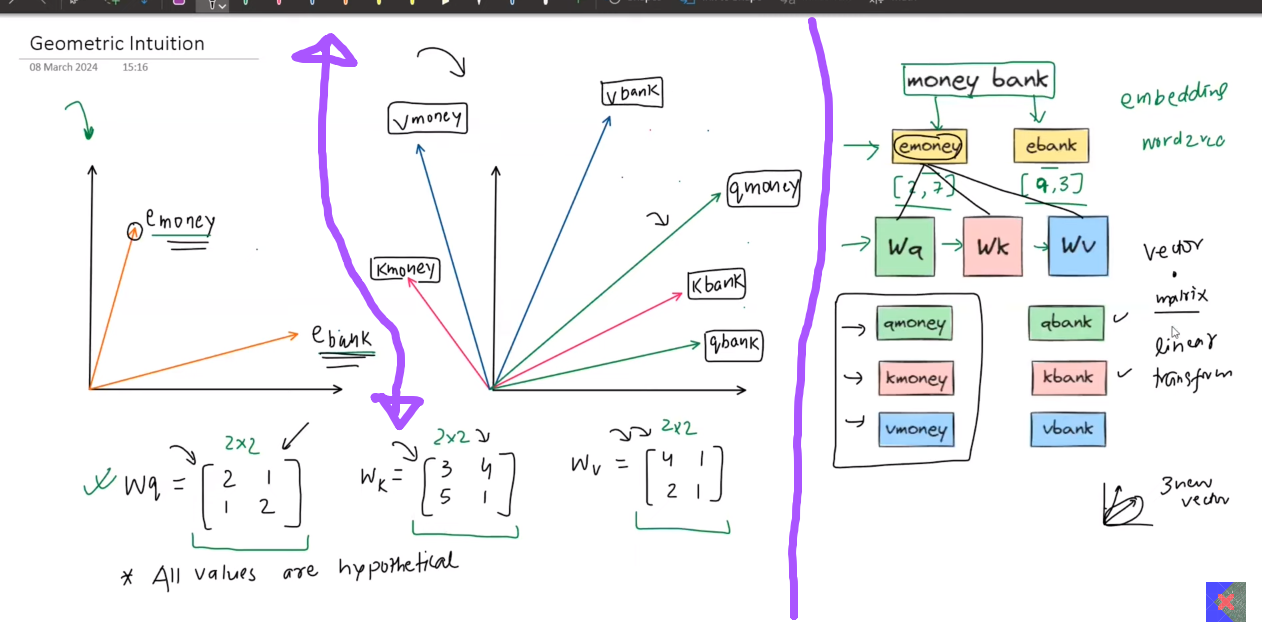 Geometric Intuition
08 March 2024 15:16
emoney
ebank
vmoney
vbank
qmoney
kmoney
kbank
qbank
2x2
Wq = [2 1
1 2]
2x2
WK = [3 4
5 1]
2x2
Wv = [4 1
2 1]
* All values are hypothetical
money bank
embedding
word2vec
emoney
ebank
[2,7]
[9,3]
Wq
Wk
Wv
vector
.
matrix
linear
transform
qmoney
qbank
kmoney
kbank
vmoney
vbank
3 new
vector